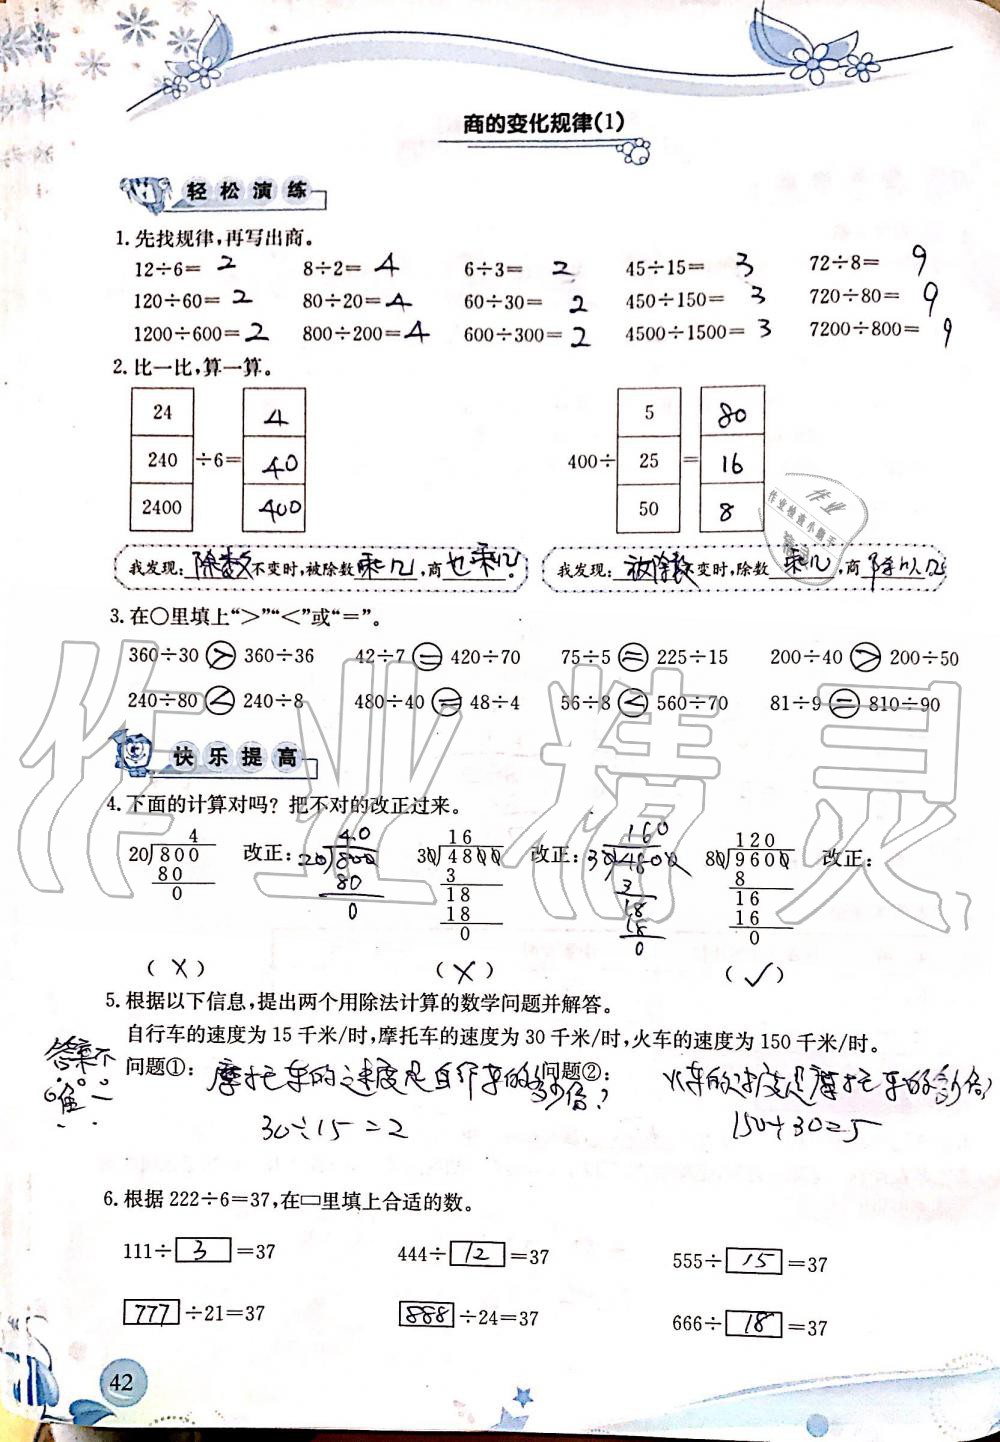 商的变化规律(1)
轻松演练
1. 先找规律,再写出商。
12÷6= 2 8÷2= 4 6÷3= 2 45÷15= 3 72÷8= 9
120÷60= 2 80÷20= 4 60÷30= 2 450÷150= 3 720÷80= 9
1200÷600= 2 800÷200= 4 600÷300= 2 4500÷1500= 3 7200÷800= 9
2. 比一比,算一算。
24 4 5 80
240 ÷6= 40 400÷ 25 = 16
2400 400 50 8
我发现: 除数 不变时,被除数 乘几 ,商 也乘几 。 我发现: 被除数 变时,除数 乘几 ,商 除以几
3. 在○里填上“>”“<”或“=”。
360÷30 > 360÷36 42÷7 = 420÷70 75÷5 = 225÷15 200÷40 > 200÷50
240÷80 < 240÷8 480÷40 = 48÷4 56÷8 < 560÷70 81÷9 = 810÷90
快乐提高
4. 下面的计算对吗?把不对的改正过来。
4 40 16 160 120
20)800 改正: 20)800 30)4800 改正: 30)4800 80)9600 改正:
80 80 3 3 8
0 0 18 18 16
18 18 16
0 0 0
(×) (×) (✓)
5. 根据以下信息,提出两个用除法计算的数学问题并解答。
自行车的速度为15千米/时,摩托车的速度为30千米/时,火车的速度为150千米/时。
答案不唯一
问题①: 摩托车的速度是自行车的多少倍? 问题②: 火车的速度是摩托车的多少倍?
30÷15=2 150÷30=5
6. 根据222÷6=37,在▭里填上合适的数。
111÷ 3 =37 444÷ 12 =37 555÷ 15 =37
777 ÷21=37 888 ÷24=37 666÷ 18 =37
42
作业精灵
作业
作业检查小助手
精灵